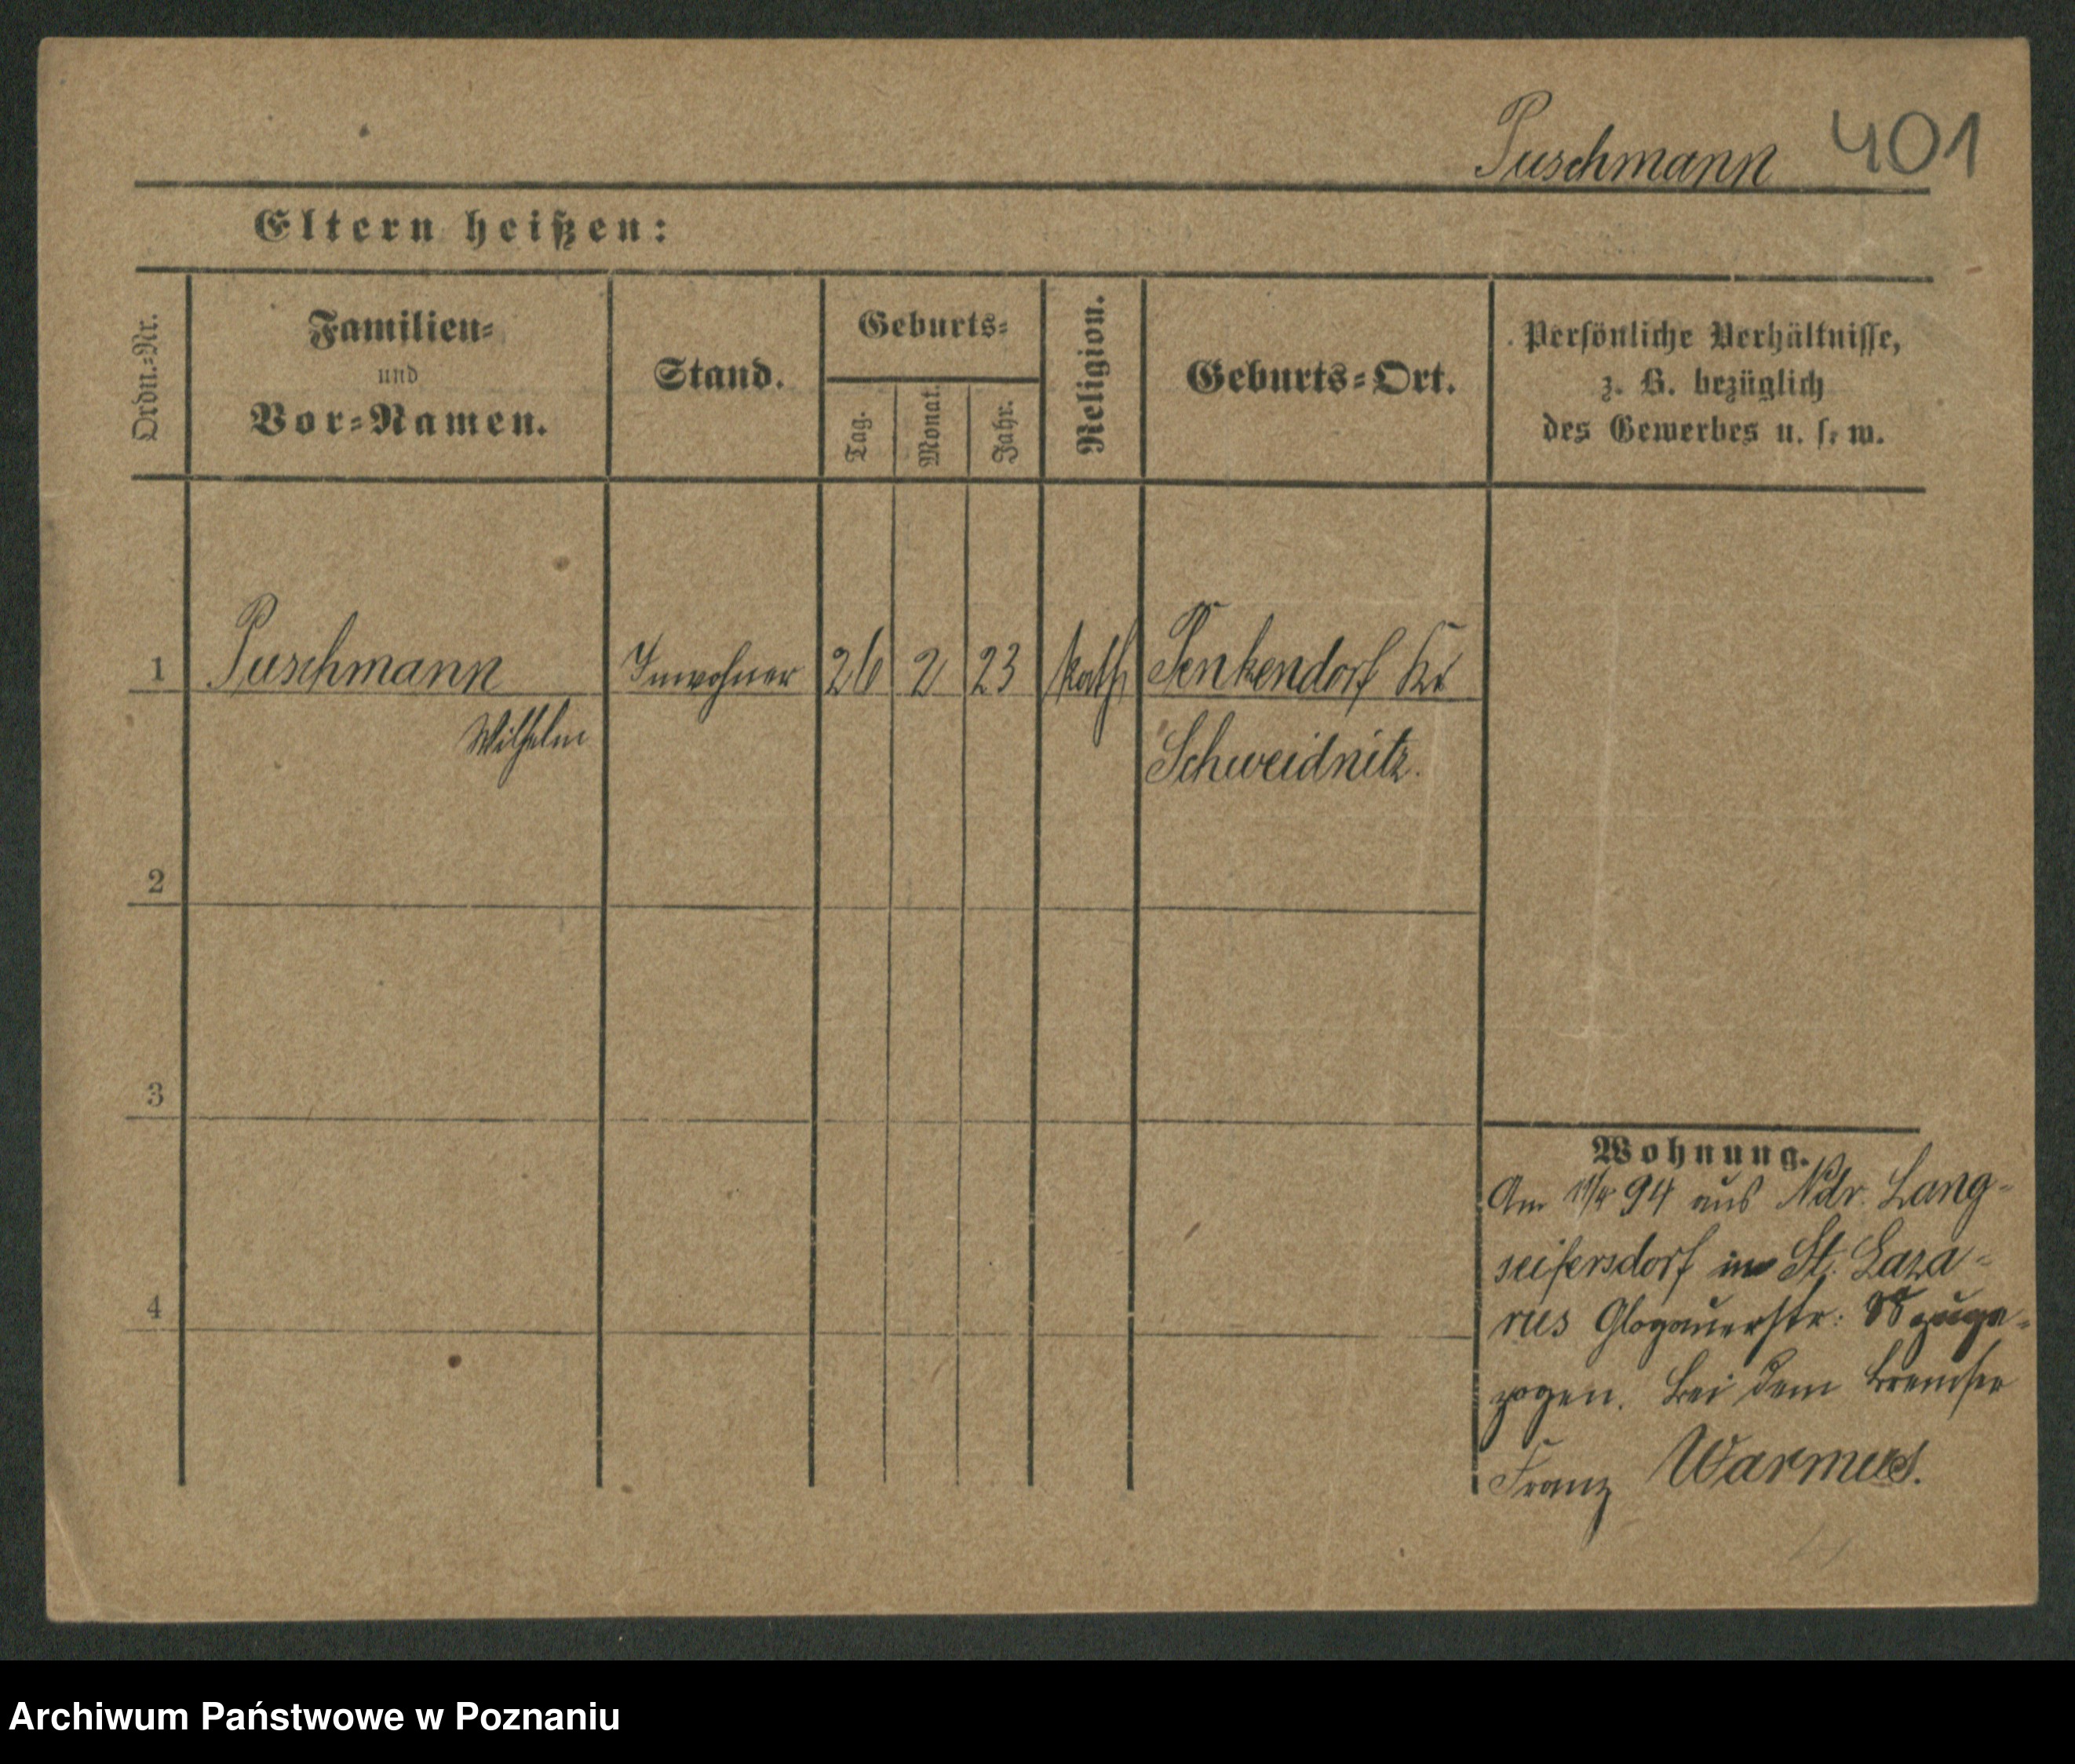 Puschmann 401
Eltern heißen:
Ordn.-Nr.
Familien-
und
Vor-Namen.
Stand.
Geburts-
Tag.
Monat.
Jahr.
Religion.
Geburts-Ort.
Persönliche Verhältnisse,
z. B. bezüglich
des Gewerbes u. s. w.
1 Puschmann Inwohner 26 2 23 kath Penkendorf Kr
Wilhelm
Schweidnitz.
2
3
4
Wohnung.
Am 94 aus Ndr. Lang-
seifersdorf in St. Laza-
rus Glogauerstr: zuge-
zogen. bei dem Bremser
Franz
Archiwum Państwowe w Poznaniu